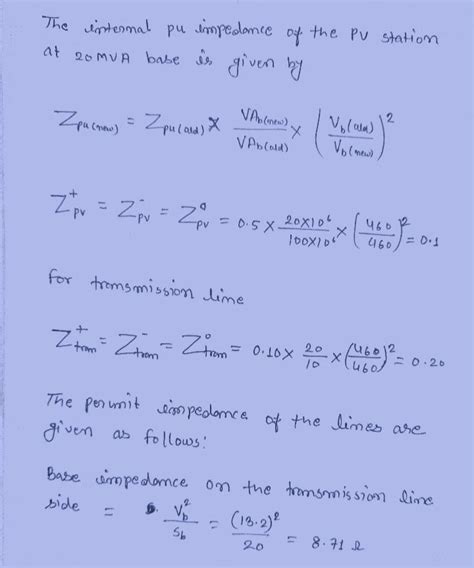 The internal pu impedance of the PV station
at 20 MVA base is given by
Zpu(new) = Zpu(old) × VAb(new)/VAb(old) × (Vb(old)/Vb(new))²
Z⁺pv = Z⁻pv = Z⁰pv = 0.5 × 20×10⁶/100×10⁶ × (460/460)² = 0.1
for transmission line
Z⁺tram = Z⁻tram = Z⁰tram = 0.10 × 20/10 × (460/460)² = 0.20
The perunit impedance of the lines are
given as follows:
Base impedance on the transmission line
side = Vb²/Sb = (13.2)²/20 = 8.71 Ω